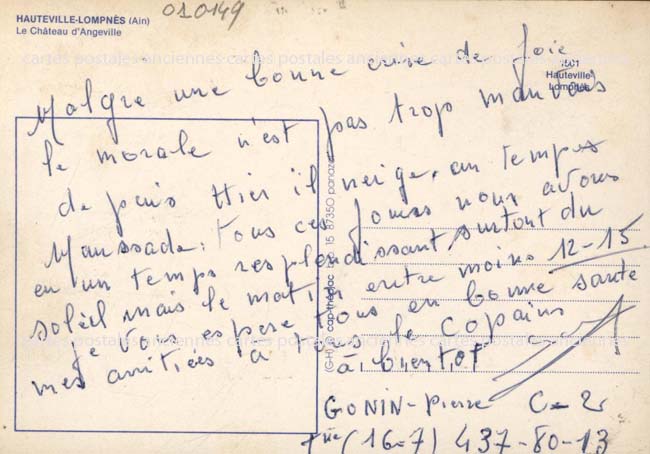 010149
HAUTEVILLE-LOMPNÈS (Ain)
Le Château d'Angeville
cartes postales anciennes cartes postales anciennes cartes postales anciennes
1501
Hauteville
Lompnès
Malgre une bonne crise de foie
le morale n'est pas trop mauvais
de puis Hier il neige, un temps
Maussade. tous ces jours nous avons
eu un temps resplendissant, surtout du
soleil mais le matin entre moins 12-15
je vous espere tous en bonne sante
mes amitiées a tous le copains
à bientot
GONIN-Pierre C-2
(16-7) 437-80-13
(GH) cap-théojac b.p. 15 87350 panazol